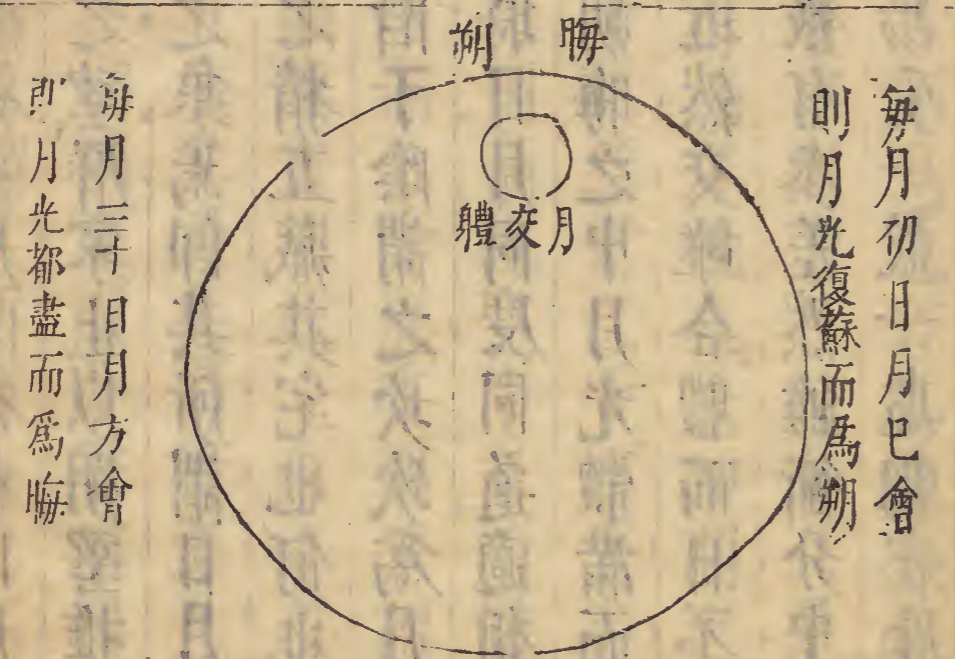 每月初日月巳會
則月光復蘇而爲朔
晦 朔
月交體
每月三十日月方會
則月光都盡而爲晦